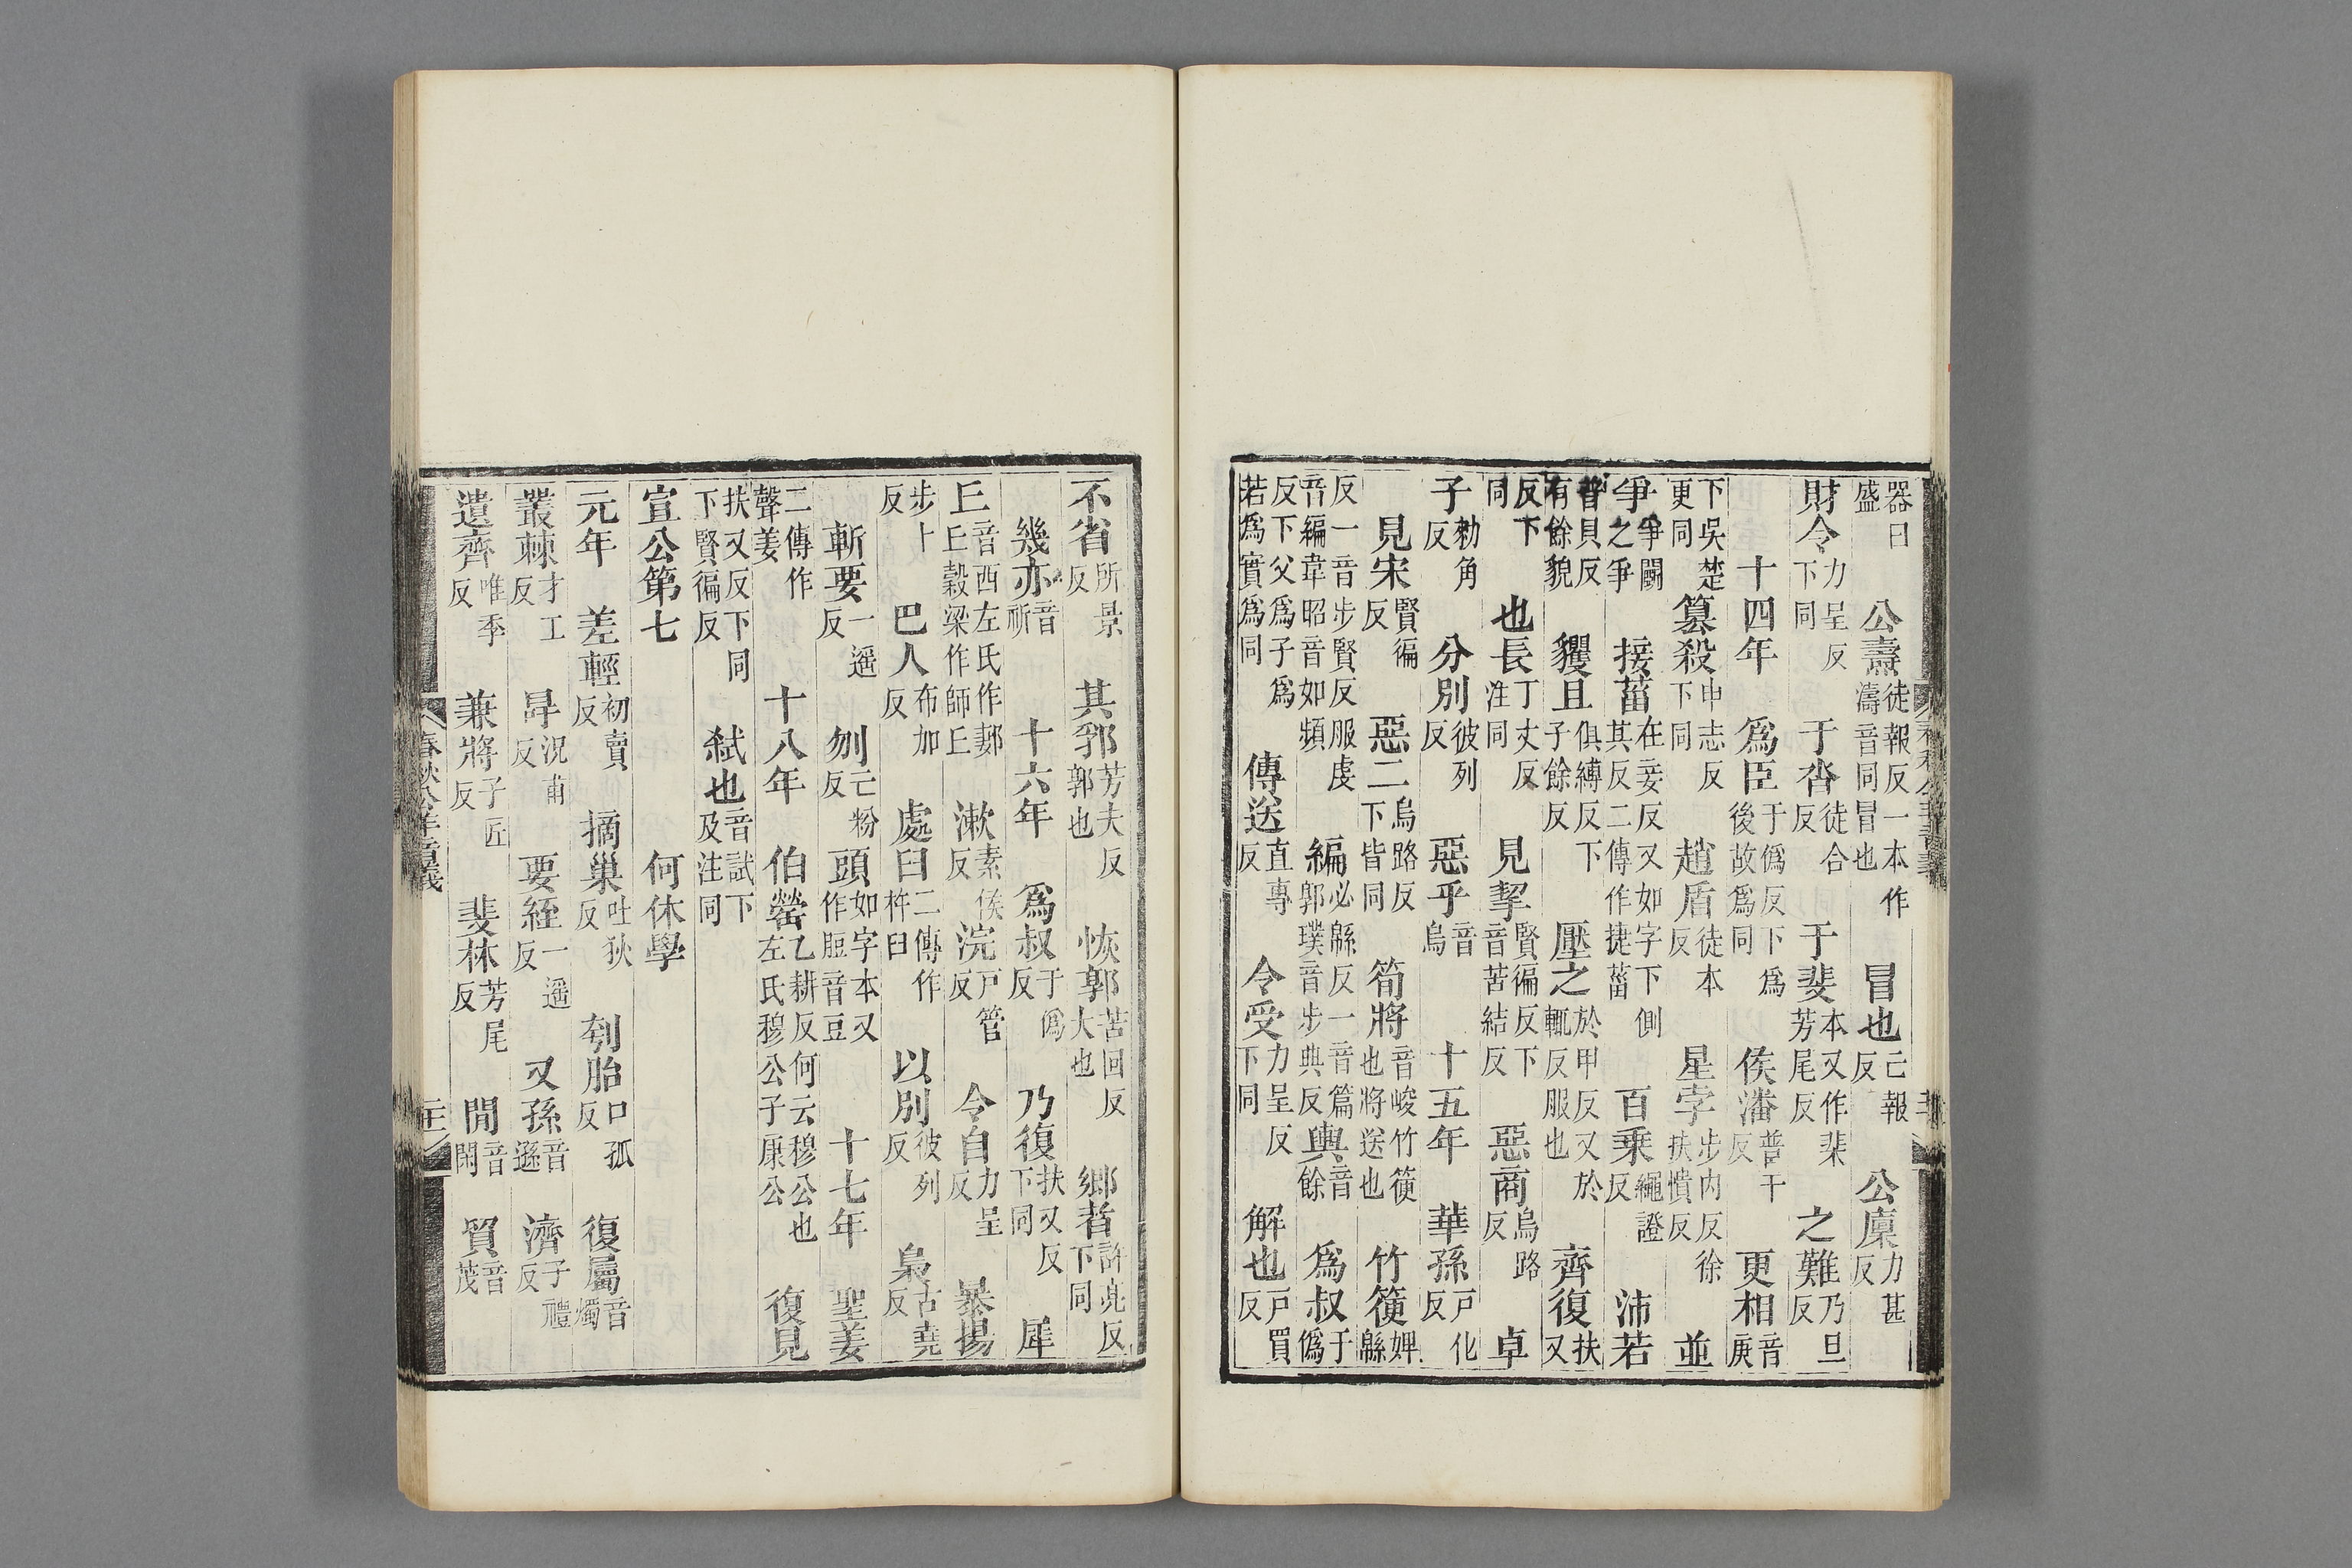 器曰盛　公燾徒報反一本作濤音同冒也　冒也亡報反　公廩力甚反
財令力呈反下同　于沓徒合反　于斐本又作棐芳尾反　之難乃旦反
十四年　爲臣于僞反下爲後故爲同　侯潘普干反　更相音庚
下吳楚更同　篡殺申志反下同　趙盾徒本反　星孛步内反徐扶憒反　並
爭爭鬭之爭　接菑在妾反又如字下側其反二傳作捷菑　百乘繩證反　沛若
普貝反有餘貌　貜且俱縛反下子餘反　壓之於甲反又於輒反服也　齊復扶又
反下同　也長丁丈反注同　見挈賢徧反下音苦結反　惡商烏路反　卓
子勑角反　分別彼列反　惡乎音烏　十五年　華孫戸化反
見宋賢徧反　惡二烏路反下皆同　筍將音峻竹筤也將送也　竹筤婢緜
反一音步賢反服虔音編韋昭音如頻　編必緜反一音篇郭璞音步典反　輿音餘　爲叔于僞
反下父爲子爲若爲實爲同　傳送直專反　令受力呈反下同　解也戸買反
不省所景反　其郛芳夫反郭也　恢郭苦回反大也　鄉者許亮反下同
幾亦音祈　十六年　爲叔于僞反　乃復扶又反下同　犀
丘音西左氏作郪丘穀梁作師丘　漱素侯反　浣戸管反　令自力呈反　暴揚
步卜反　巴人布加反　處臼二傳作杵臼　以別彼列反　梟古堯反
斬要一遥反　刎亡粉反　頭如字本又作脰音豆　十七年　聖姜
二傳作聲姜　十八年　伯罃乙耕反何云穆公也左氏穆公子康公　復見
扶又反下同下賢徧反　弑也音試下及注同
宣公第七　何休學
元年　差輕初賣反　摘巢吐狄反　刳胎口孤反　復屬音燭
叢棘才工反　冔況甫反　要絰一遥反　又孫音遜　濟子禮反
遺齊唯季反　兼將子匠反　斐林芳尾反　閒音閑　貿音茂
春秋公羊音義